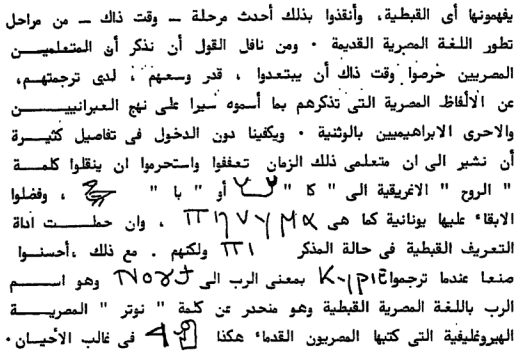 يفهمونها أى القبطية، وأنقذوا بذلك أحدث مرحلة – وقت ذاك – من مراحل
تطور اللغة المصرية القديمة ٠ ومن نافل القول أن نذكر أن المتعلميـــن
المصريين حرصوا وقت ذاك أن يبتعدوا ، قدر وسعهم ، لدى ترجمتهـــم،
عن الألفاظ المصرية التى تذكرهم بما أسموه سيرا على نهج العبرانييـــن
والاحرى الابراهيميين بالوثنية ٠ ويكفينا دون الدخول فى تفاصيل كثيـــرة
أن نشير الى ان متعلمى ذلك الزمان تعففوا واستحرموا ان ينقلوا كلمـــة
" الروح " الاغريقية الى " كا " أو " با " ، وفضلوا
الابقاء عليها يونانية كما هى πηνγμα ، وان حملـــت اداة
التعريف القبطية فى حالة المذكر πι ولكنهم ٠ مع ذلك ،أحسنـــوا
صنعا عندما ترجموا بمعنى الرب الى وهو اســـم
الرب باللغة المصرية القبطية وهو منحدر عن كلمة " نوتر " المصريـــة
الهيروغليفية التى كتبها المصريون القدماء هكذا فى غالب الأحيـــان٠